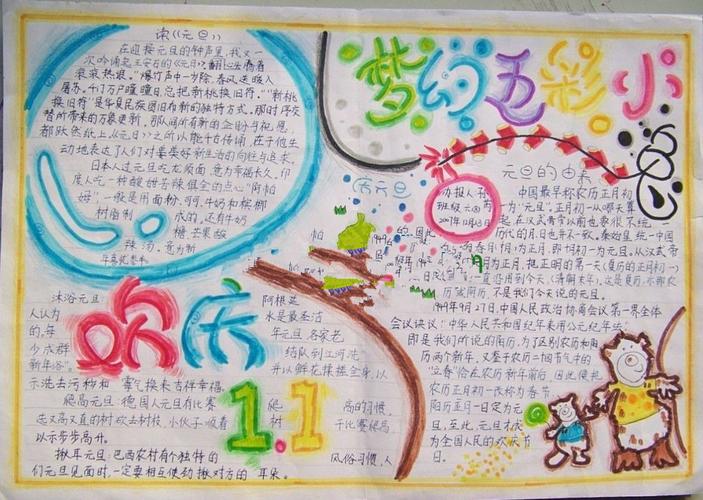 读《元旦》
在迎接元旦的钟声里,我又一
次吟诵起王安石的《元日》
滚滚热浪。“爆竹声中一岁除,春风送暖入
屠苏。千门万户曈曈日,总把新桃换旧符。”“新桃
换旧符”是华夏民族团旧布新的独特方式。那时序交
替所带来的万象更新,
都跃然纸上《元日》之所以能千古传诵,在于他生
动地表达了人们对美好新生活的向往与追求。
日本人过元旦吃龙须面,意为幸福长久。印
度人吃一种酸甜苦辣俱全的点心“阿帕
姆”,一般是用面粉、可可、牛奶和槟榔
树脂制
水的,还有牛奶
糖、芒果酸
辣汤。意为新
梦幻七彩小
庆元旦
办报人:孙
班级:六
2007年12月
元旦的由来
中国最早称农历正月初一
为“元旦”,
起,在汉武帝以前也家很不统一
历代的元旦也并不一致。
元旦。从汉武帝
为正月,把正明的第一天(夏历的正月初一)
一直沿用到今天
不是我们今天说的元旦。
1949年9月27日,中国人民政治协商会议第一界全体
会议决议:“中华人民共和国纪年采用公元纪年法”,
即是我们所说的阳历,为了区别农历和阳
历两个新年,又鉴于农历二十四节气中的
“立春”恰在农历新年前后,因此便把
农历正月初一改称为春节
阳历正月一日定为元
旦,至此,元旦才成
为全国人民的欢欣节
日。
欢庆
1.1
沐浴元旦:
人认为
的,每
少成群
新年浴”。
阿根廷
水是最圣洁
年元旦,各家老
结队到江河洗
并以鲜花揉搓全身,以
示洗去污秽和
霉气换来吉祥幸福。
爬高元旦:德国人元旦有比赛
爬
高的习惯,
选又高又直的树砍去树枝,小伙子顺着
树
干比赛爬高
以示步步高升。
揪耳元旦:巴西农村有个独特的
风俗习惯,人
们元旦见面时,一定要相互使劲揪对方的耳朵。